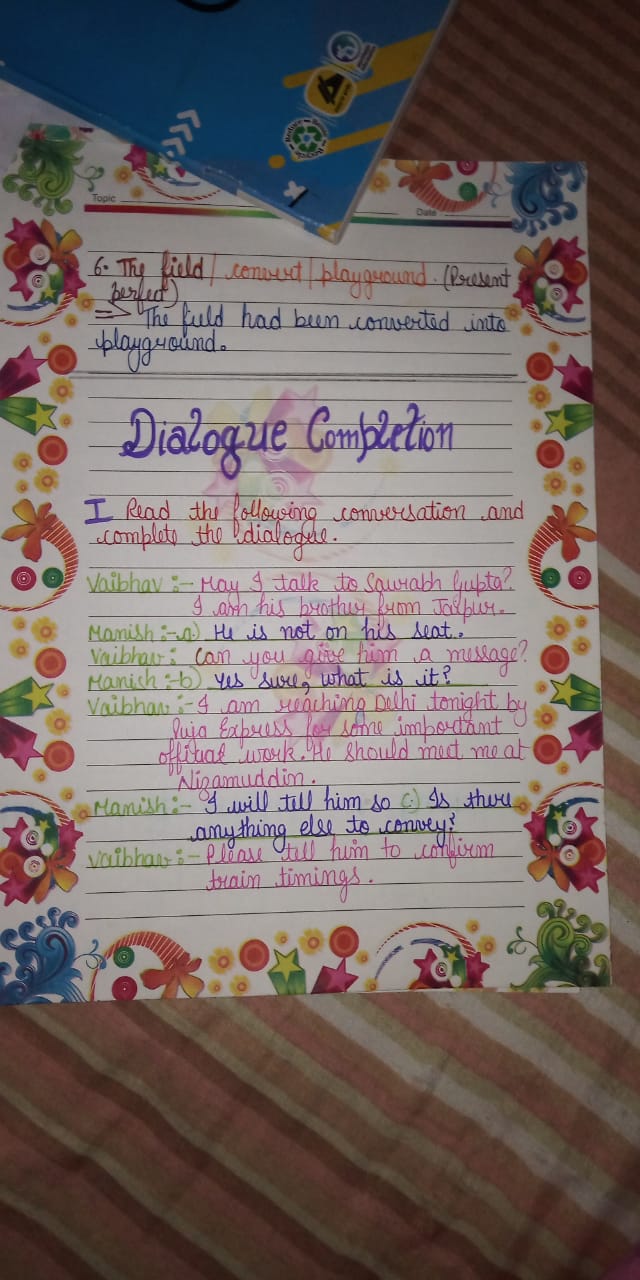 Topic
Date
6. The field / convert / playground. (Present
perfect)
=> The field had been converted into
playground.
Dialogue Completion
I Read the following conversation and
complete the dialogue.
Vaibhav :- May I talk to Saurabh Gupta?
I am his brother from Jaipur.
Manish :- a) He is not on his seat.
Vaibhav : Can you give him a message?
Manish :- b) Yes sure, what is it?
Vaibhav :- I am reaching Delhi tonight by
Puja Express for some important
official work. He should meet me at
Nizamuddin.
Manish :- I will tell him so c) Is there
anything else to convey?
Vaibhav :- Please tell him to confirm
train timings.